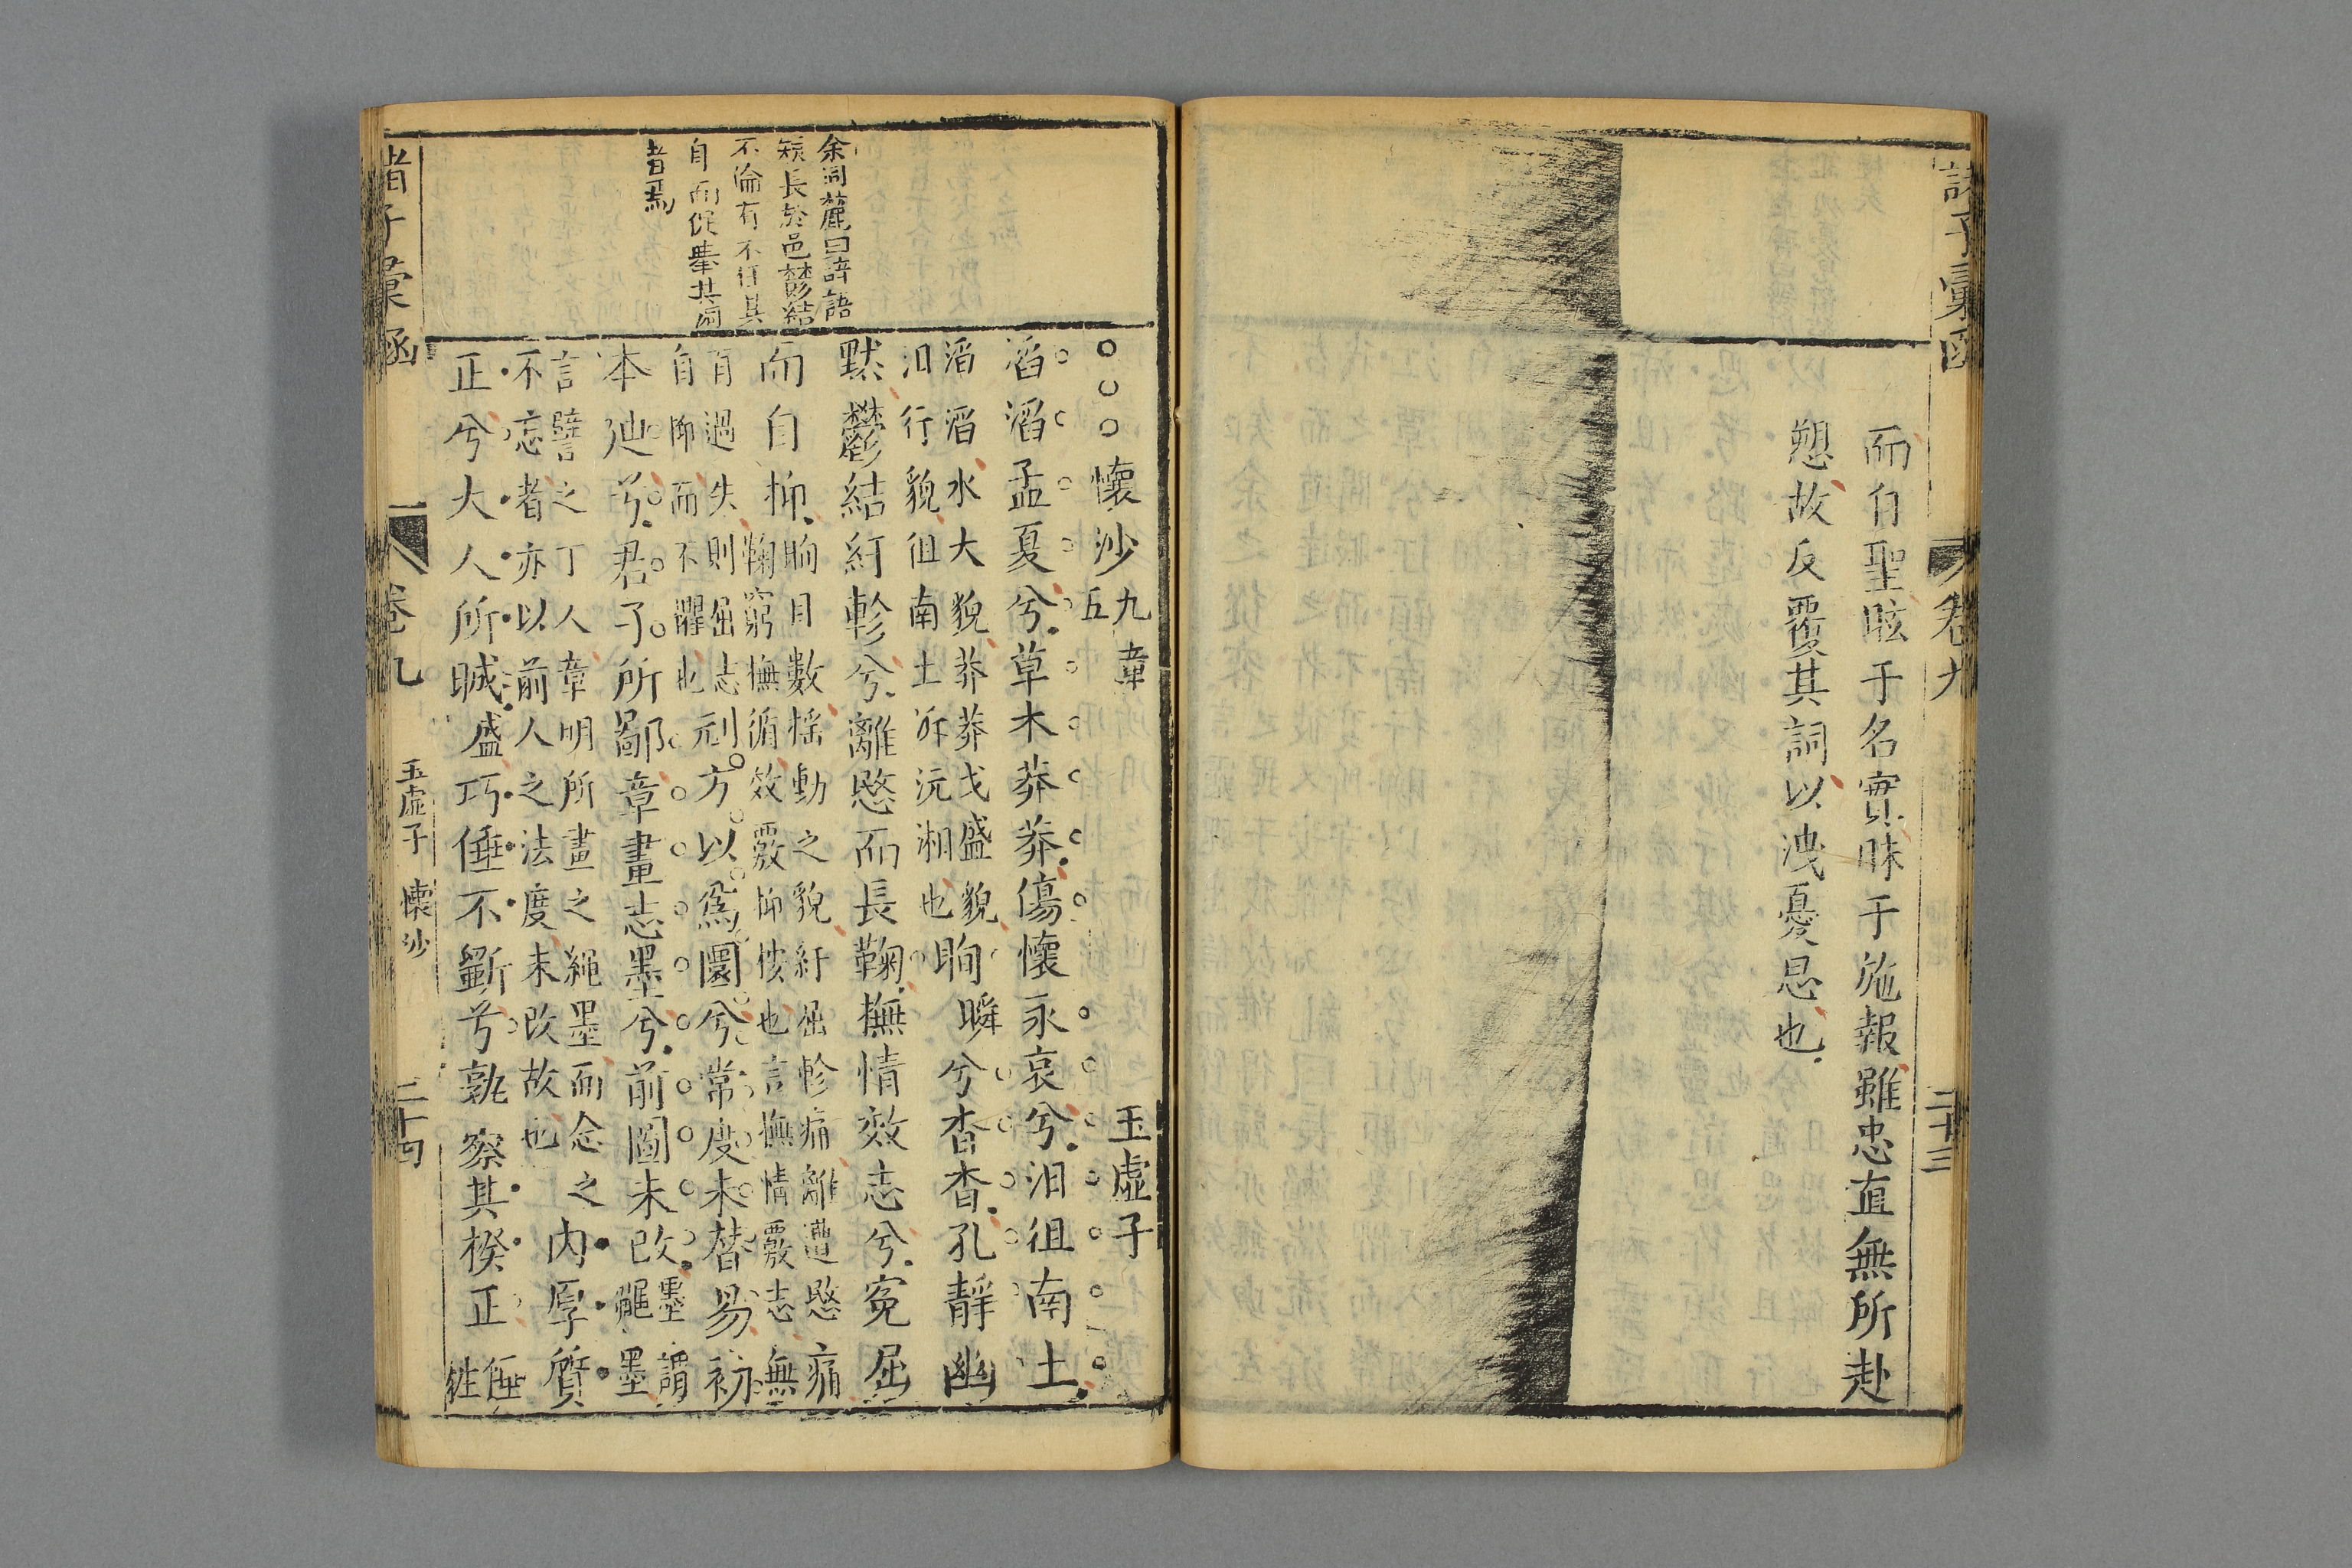 諸子彙函
卷九
二十三
而自聖眩于名實昧于施報雖忠直無所赴
愬故反覆其詞以洩憂思也
懷沙九章五
玉虛子
滔滔孟夏兮草木莽莽傷懷永哀兮汩徂南土
滔滔水大貌莽莽戈盛貌
汩行貌徂南土泝沅湘也
眴瞬兮杳杳孔靜幽
默鬱結紆軫兮離愍而長鞠撫情效志兮冤屈
而自抑
眴目數搖動之貌紆屈軫痛離遭愍痛
鞠窮撫循效覈抑按也言撫情覈志無
有過失則屈志
自抑而不懼也
刓方以爲圜兮常度未替易初
本廸兮君子所鄙章畫志墨兮前圖未改
墨謂
繩墨
言譬之工人章明所畫之繩墨而念之
不忘者亦以前人之法度未改故也
內厚質
正兮大人所晠盛巧倕不斲兮孰察其揆正
倕
余同麓曰諄語
短長於邑鬱結
不倫有不任其
自而促舉其詞
者焉
諸子彙函
卷九
玉虛子
懷沙
二十四